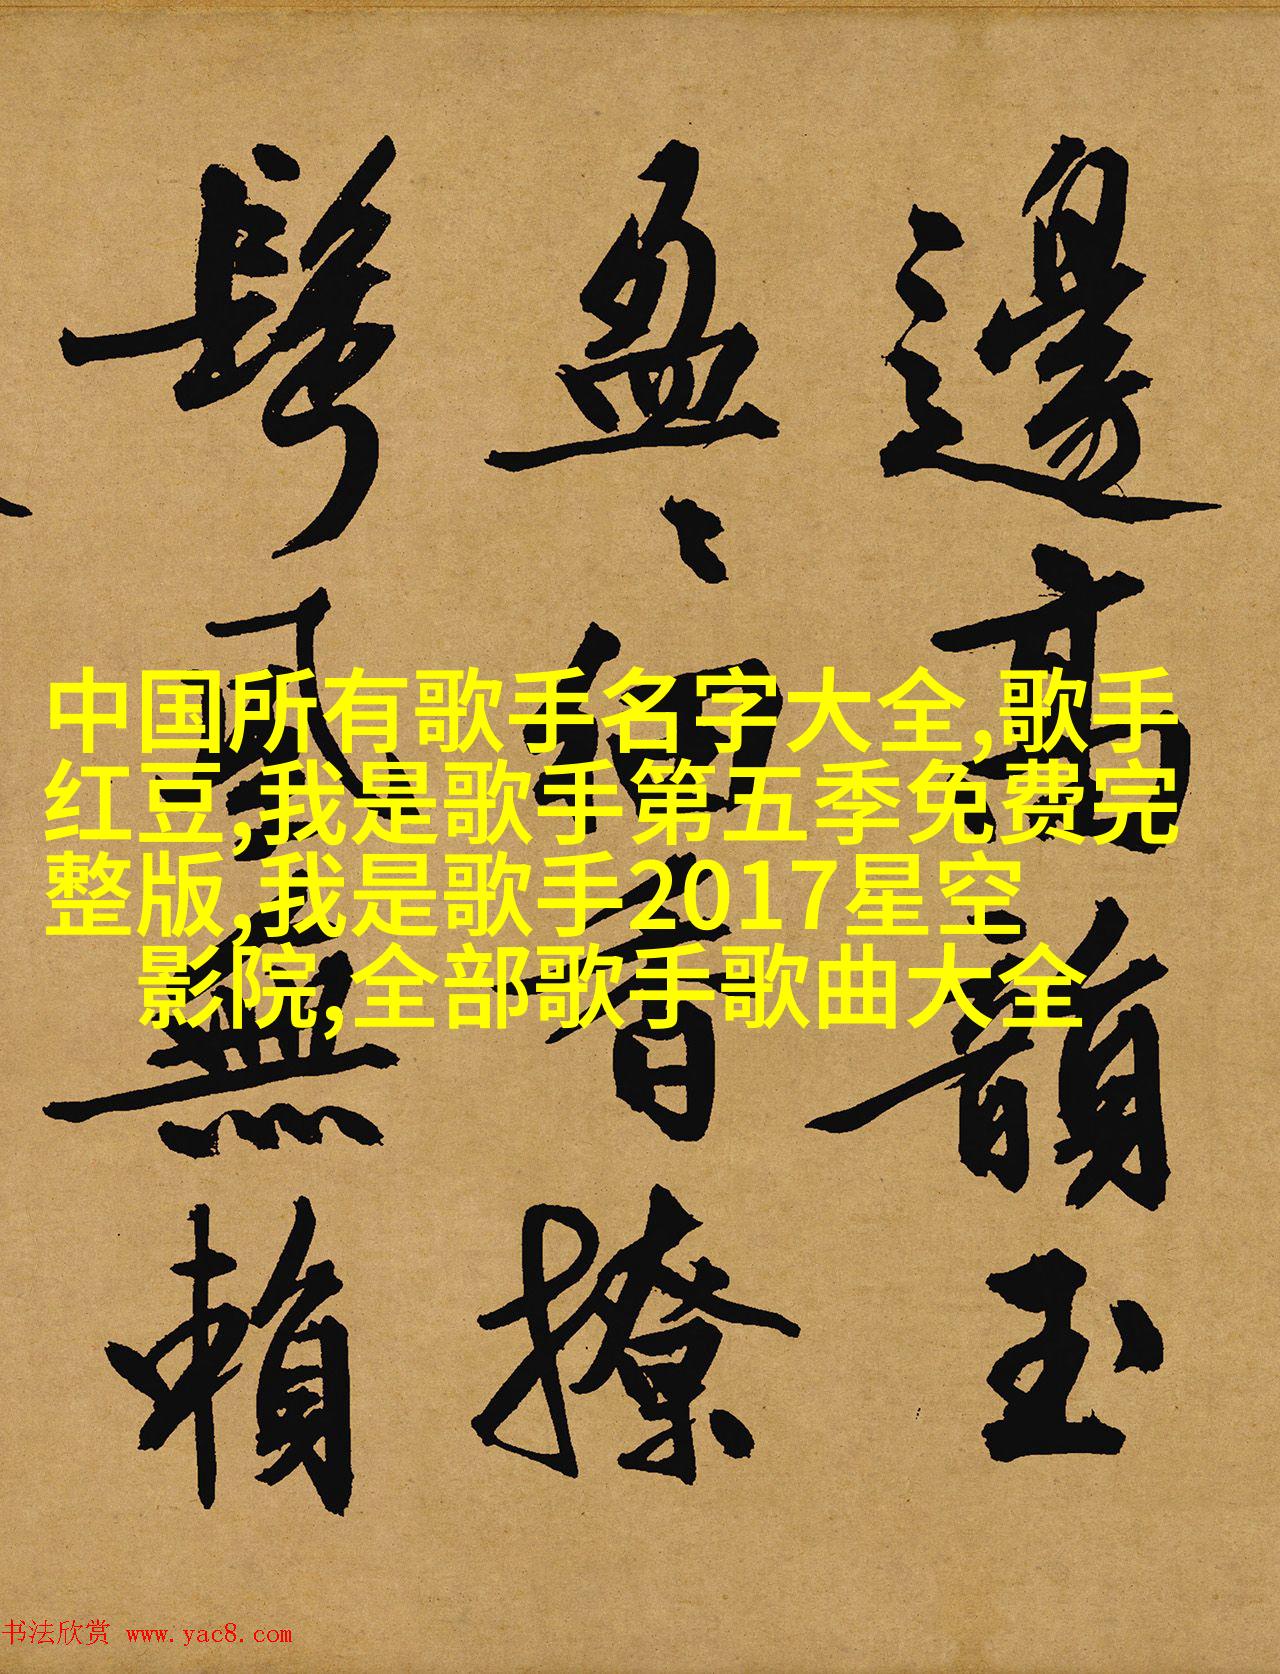 邊高韻玉
盈〻細香撩
鬢風無賴
中国所有歌手名字大全,歌手
红豆,我是歌手第五季免费完
整版,我是歌手2017星空
影院,全部歌手歌曲大全
书法欣赏 www.yac8.com